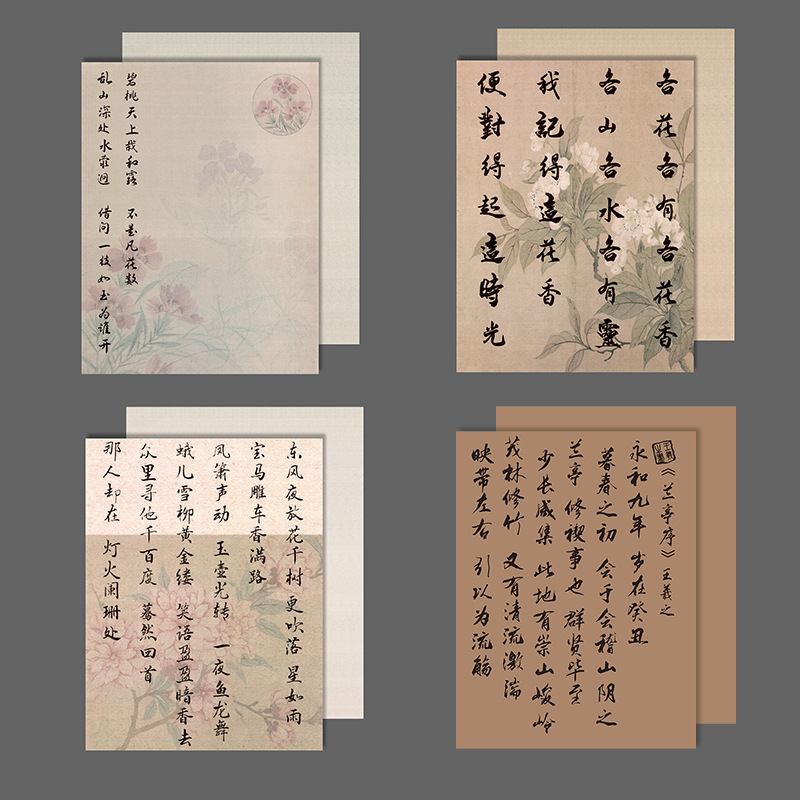 碧桃天上栽和露 不是凡花数
乱山深处水萦迴 借问一枝如玉为谁开
各花各有各花香
各山各水各有靈
我記得這花香
便對得起這時光
东风夜放花千树 更吹落 星如雨
宝马雕车香满路
凤箫声动 玉壶光转 一夜鱼龙舞
蛾儿雪柳黄金缕 笑语盈盈暗香去
众里寻他千百度 蓦然回首
那人却在 灯火阑珊处
《兰亭序》王羲之
永和九年 岁在癸丑
暮春之初 会于会稽山阴之
兰亭 修禊事也 群贤毕至
少长咸集 此地有崇山峻岭
茂林修竹 又有清流激湍
映带左右 引以为流觞